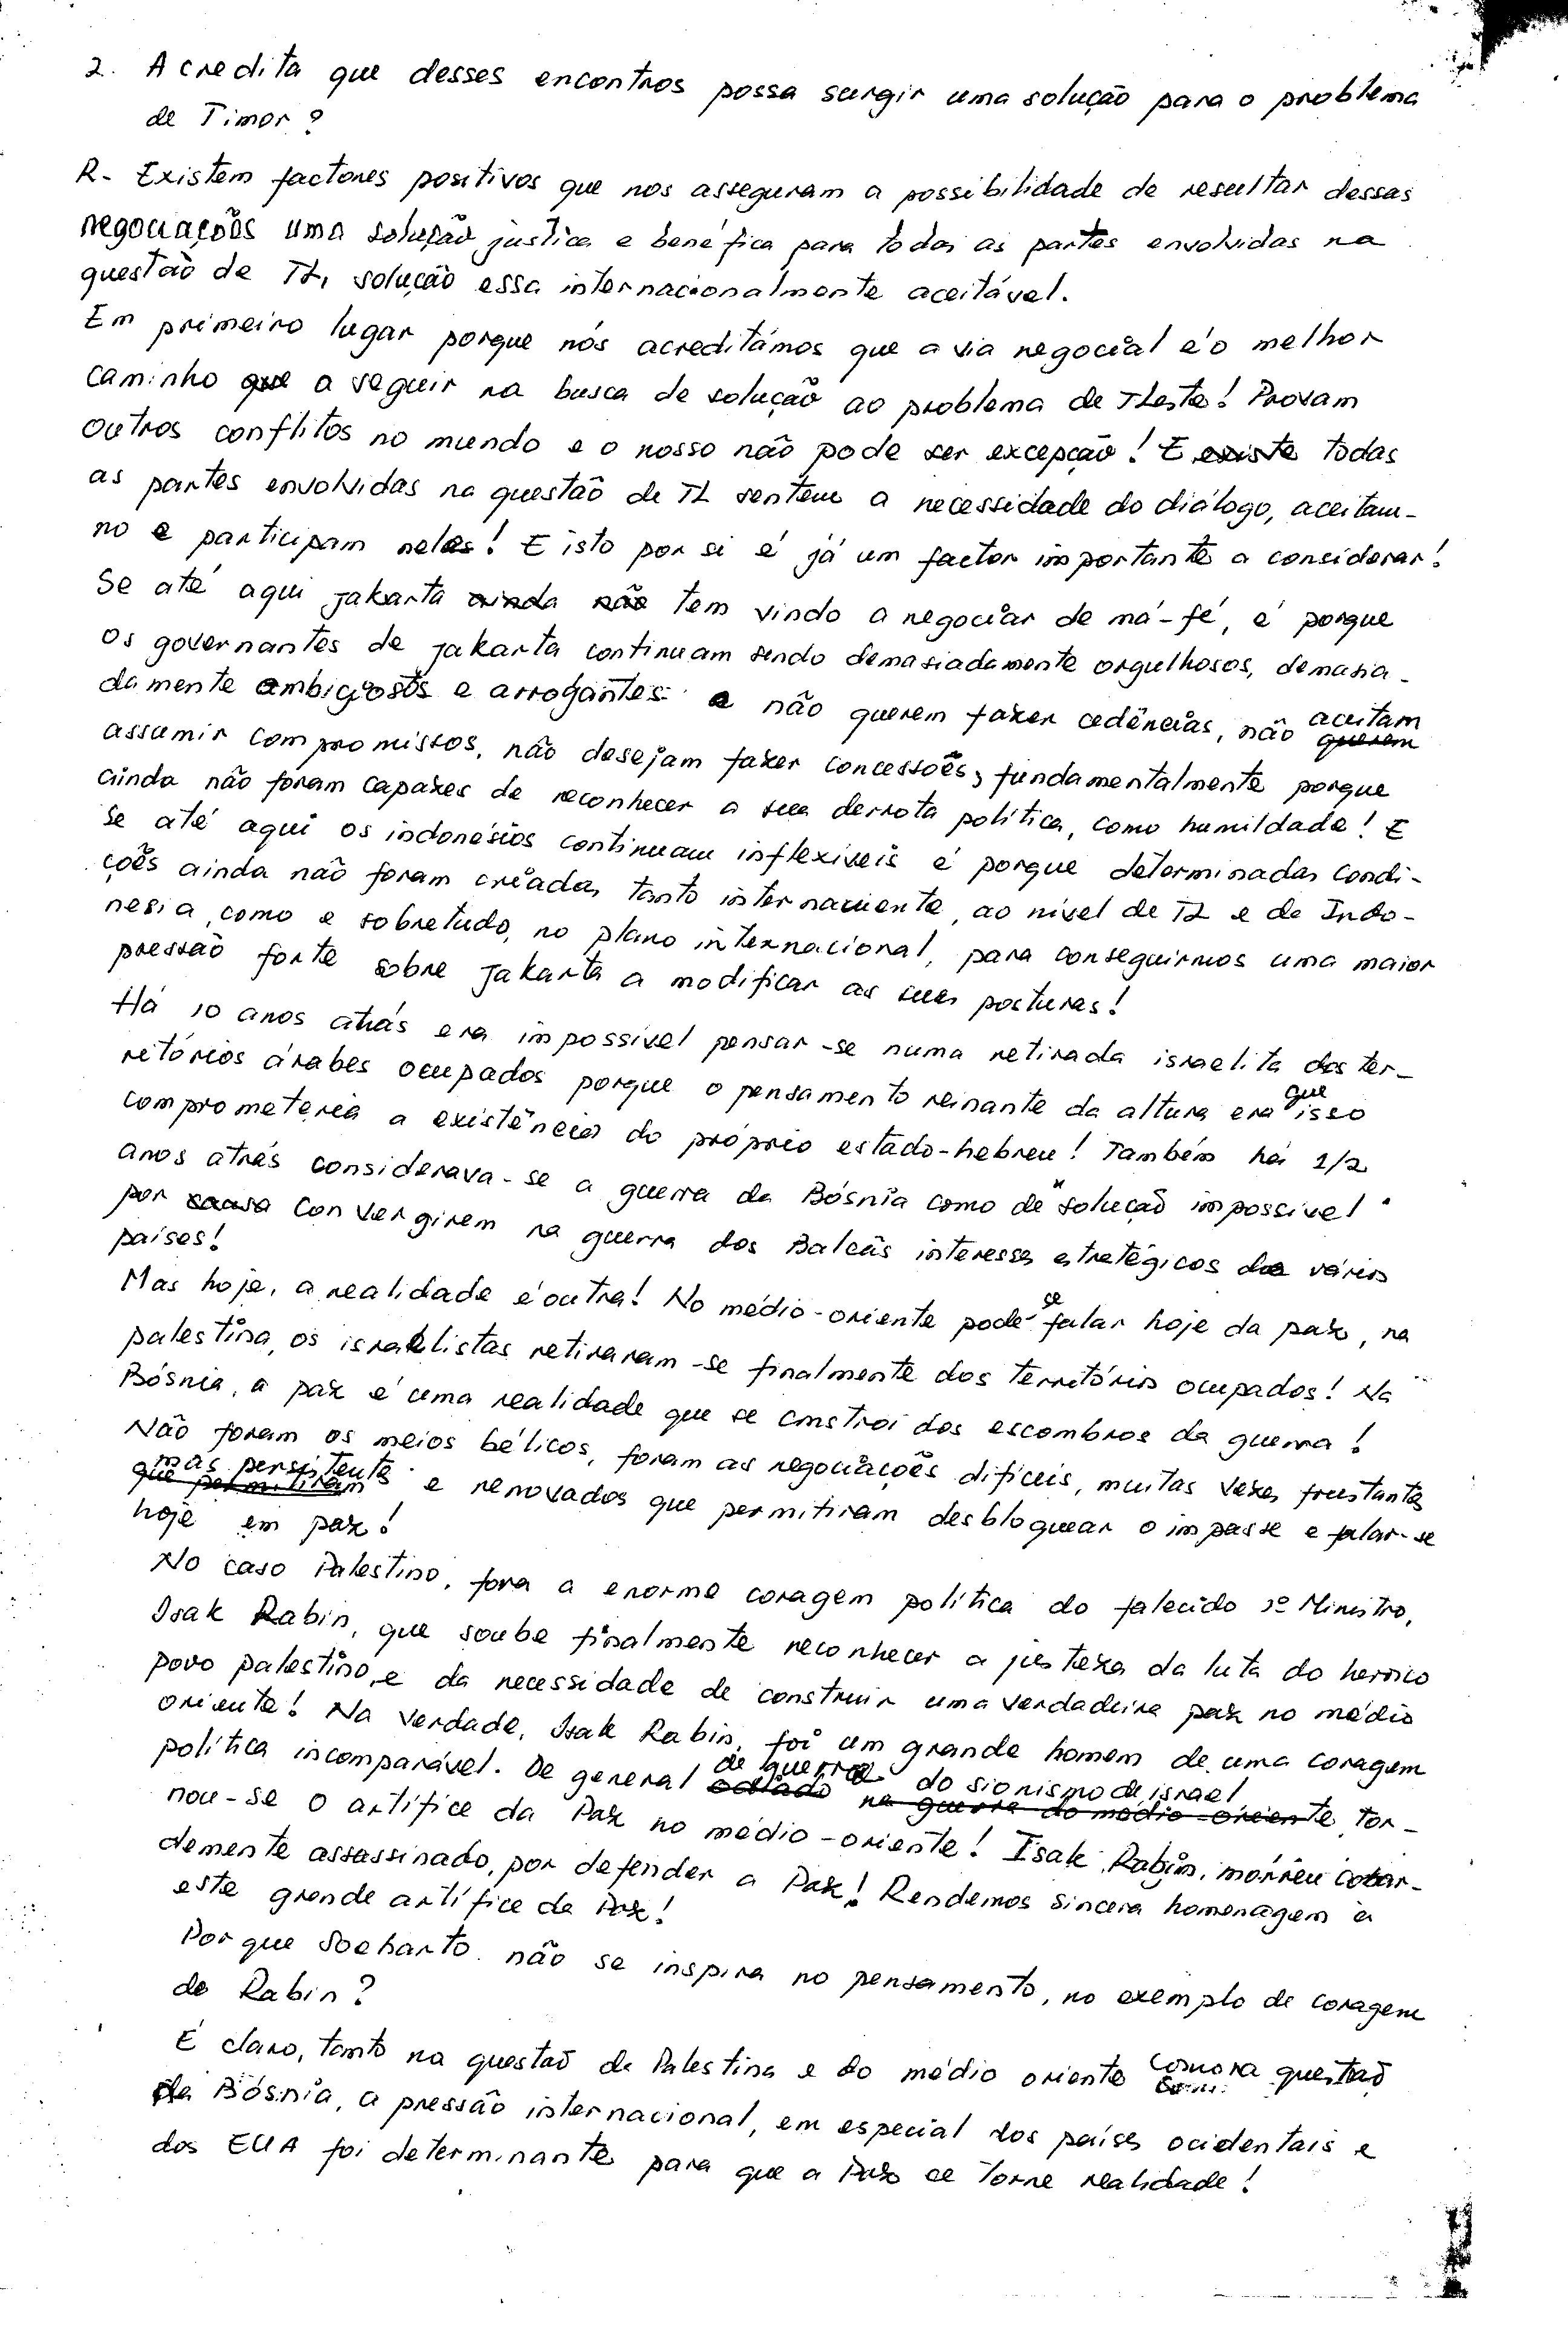 2. Acredita que desses encontros possa surgir uma solução para o problema
de Timor?
R- Existem factores positivos que nos asseguram a possibilidade de resultar dessas
negociações uma solução justica e benéfica para todas as partes envolvidas na
questão de TL, solução essa internacionalmente aceitável.
Em primeiro lugar porque nós acreditámos que a via negocial é o melhor
caminho que a seguir na busca de solução ao problema de TLeste! Provam
outros conflitos no mundo e o nosso não pode ser excepção! E existe todas
as partes envolvidas na questão de TL sentem a necessidade do diálogo, aceitam-
no e participam neles! E isto por si é já um factor importante a considerar!
Se até aqui Jakarta ainda não tem vindo a negociar de má-fé, é porque
os governantes de Jakarta continuam sendo demasiadamente orgulhosos, demasia-
damente ambiciosos e arrogantes e não querem fazer cedências, não aceitam querem
assumir compromissos, não desejam fazer concessões, fundamentalmente porque
ainda não foram capazes de reconhecer a sua derrota política, como humildade! E
se até aqui os indonésios continuam inflexíveis é porque determinadas condi-
ções ainda não foram criadas, tanto internamente, ao nível de TL e da Indo-
nesia, como e sobretudo, no plano internacional, para conseguirmos uma maior
pressão forte sobre Jakarta a modificar as suas posturas!
Há 10 anos atrás era impossível pensar-se numa retirada israelita dos ter-
ritórios árabes ocupados porque o pensamento reinante da altura era que isso
comprometeria a existência do próprio estado-hebreu! Também há 1/2
anos atrás considerava-se a guerra da Bósnia como de "solução impossível"
por causa convergirem na guerra dos Balcãs interesses estratégicos de vários
países!
Mas hoje, a realidade é outra! No médio-oriente pode-se falar hoje da paz, na
palestina, os israelistas retiraram-se finalmente dos territórios ocupados! Na
Bósnia, a paz é uma realidade que se constroi dos escombros da guerra!
Não foram os meios bélicos, foram as negociações difíceis, muitas vezes frustantes
mas persistentes que permitiram e renovados que permitiram desbloquear o impasse e falar-se
hoje em paz!
No caso Palestino, fora a enorme coragem política do falecido 1º Ministro,
Isak Rabin, que soube finalmente reconhecer a justeza da luta do heroico
povo palestino, e da necessidade de construir uma verdadeira paz no médio
oriente! Na verdade, Isak Rabin, foi um grande homem de uma coragem
política incomparável. De general de guerra do sionismo de israel na guerra do médio-oriente, tor-
nou-se o artífice da Paz no médio-oriente! Isak Rabin, morreu cobar-
demente assassinado, por defender a Paz! Rendemos sincera homenagem a
este grande artífice da Paz!
Porque Soeharto não se inspira no pensamento, no exemplo de coragem
de Rabin?
É claro, tanto na questão da Palestina e do médio oriente como na questão
da Bósnia, a pressão internacional, em especial dos países ocidentais e
dos EUA foi determinante para que a Paz se torne realidade!